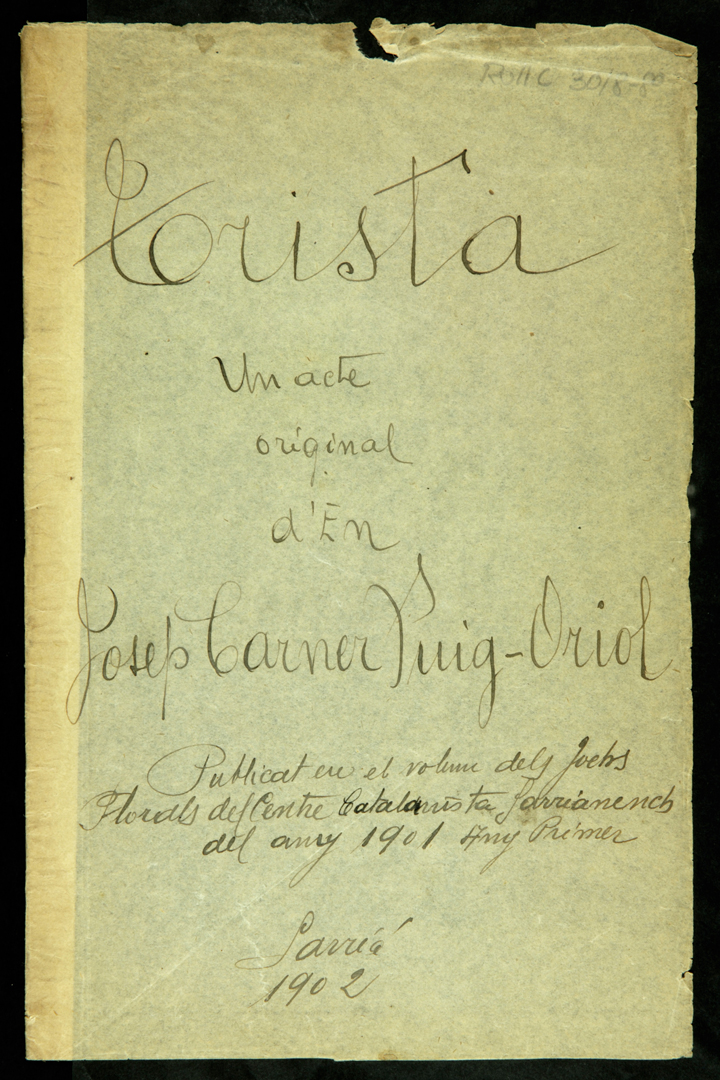 Trista
Un acte
original
d'En
Josep Carner Puig-Oriol
Publicat en el volum dels Jochs
Florals del Centre Catalanista Sarrianench
del any 1901 Any Primer
Sarriá
1902